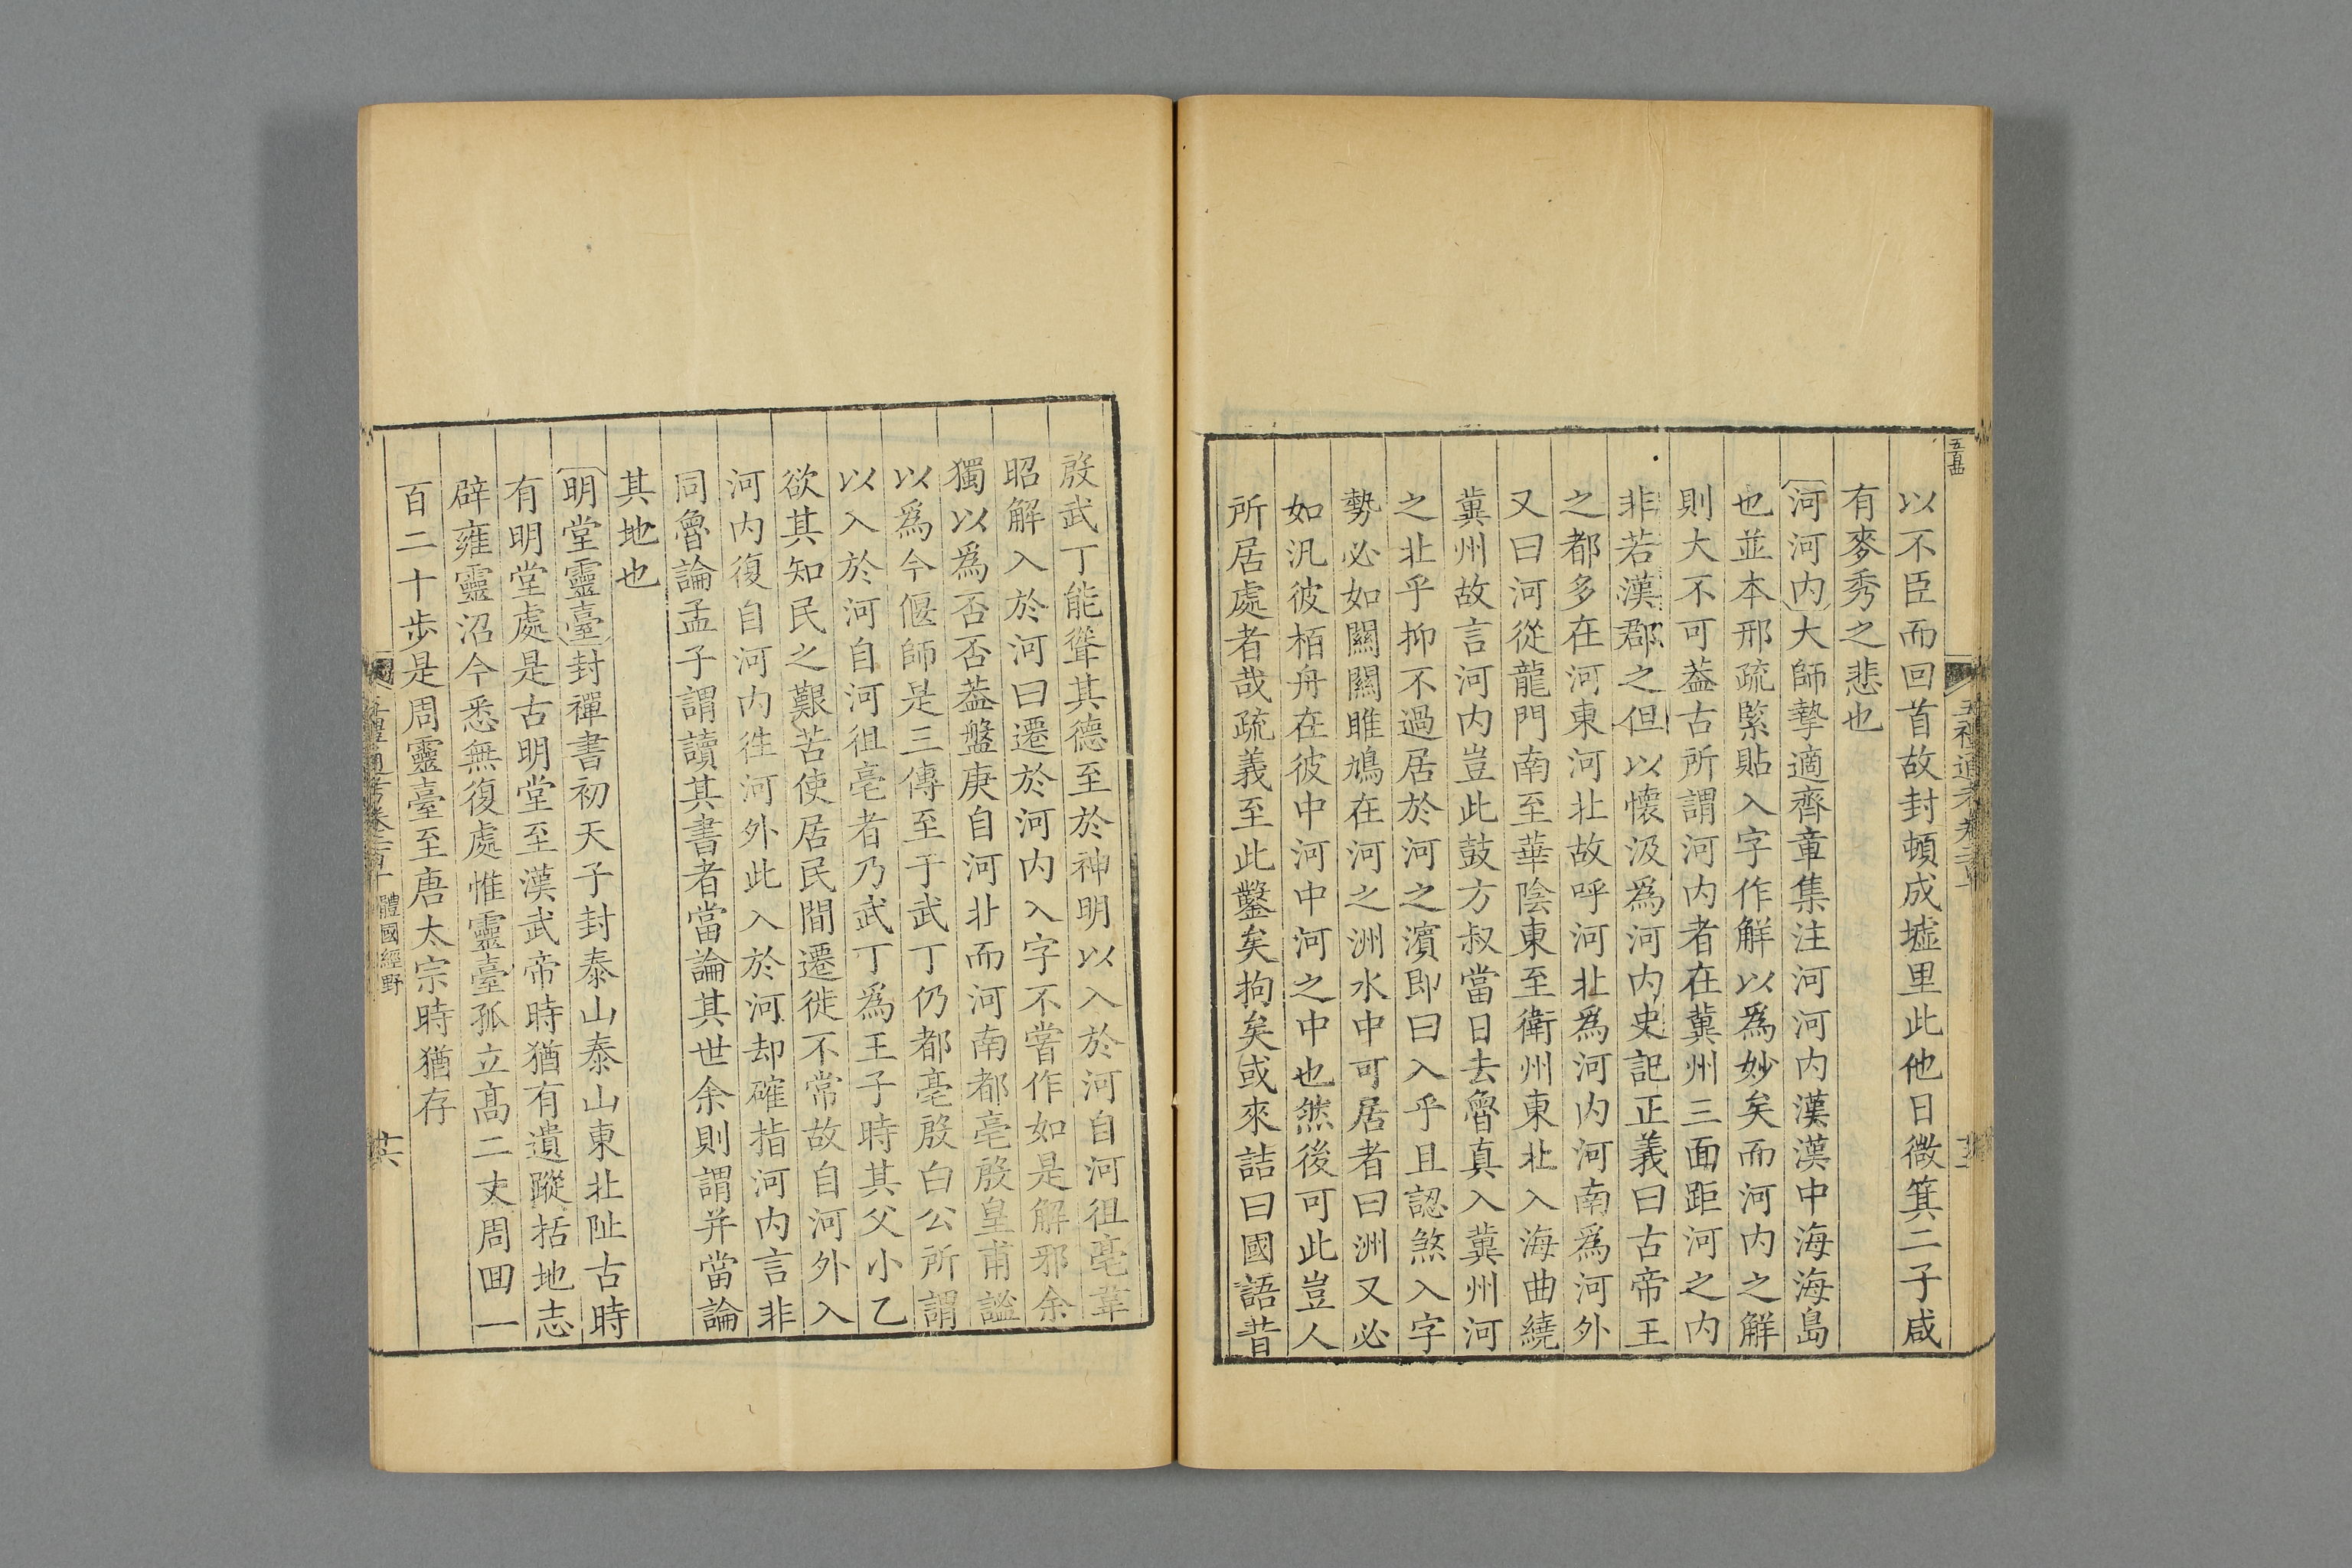 以不臣而回首故封頓成墟里此他日微箕二子咸
有麥秀之悲也
河河内大師摯適齊章集注河河内漢漢中海海島
也並本邢疏緊貼入字作解以為妙矣而河内之解
則大不可葢古所謂河内者在冀州三面距河之内
非若漢郡之但以懷汲爲河内史記正義曰古帝王
之都多在河東河北故呼河北爲河内河南爲河外
又曰河從龍門南至華陰東至衛州東北入海曲繞
冀州故言河内豈此鼓方叔當日去魯真入冀州河
之北乎抑不過居於河之濱即曰入乎且認煞入字
勢必如關關雎鳩在河之洲水中可居者曰洲又必
如汎彼栢舟在彼中河中河之中也然後可此豈人
所居處者哉疏義至此鑿矣拘矣或來詰曰國語昔
殷武丁能聳其德至於神明以入於河自河徂亳韋
昭解入於河曰遷於河内入字不嘗作如是解邪余
獨以爲否否葢盤庚自河北而河南都亳殷皇甫謐
以爲今偃師是三傳至于武丁仍都亳殷白公所謂
以入於河自河徂亳者乃武丁爲王子時其父小乙
欲其知民之艱苦使居民間遷徙不常故自河外入
河内復自河内徃河外此入於河却確指河内言非
同魯論孟子謂讀其書者當論其世余則謂并當論
其地也
明堂靈臺封禪書初天子封泰山泰山東北阯古時
有明堂處是古明堂至漢武帝時猶有遺蹤括地志
辟雍靈沼今悉無復處惟靈臺孤立髙二丈周回一
百二十步是周靈臺至唐太宗時猶存
體國經野